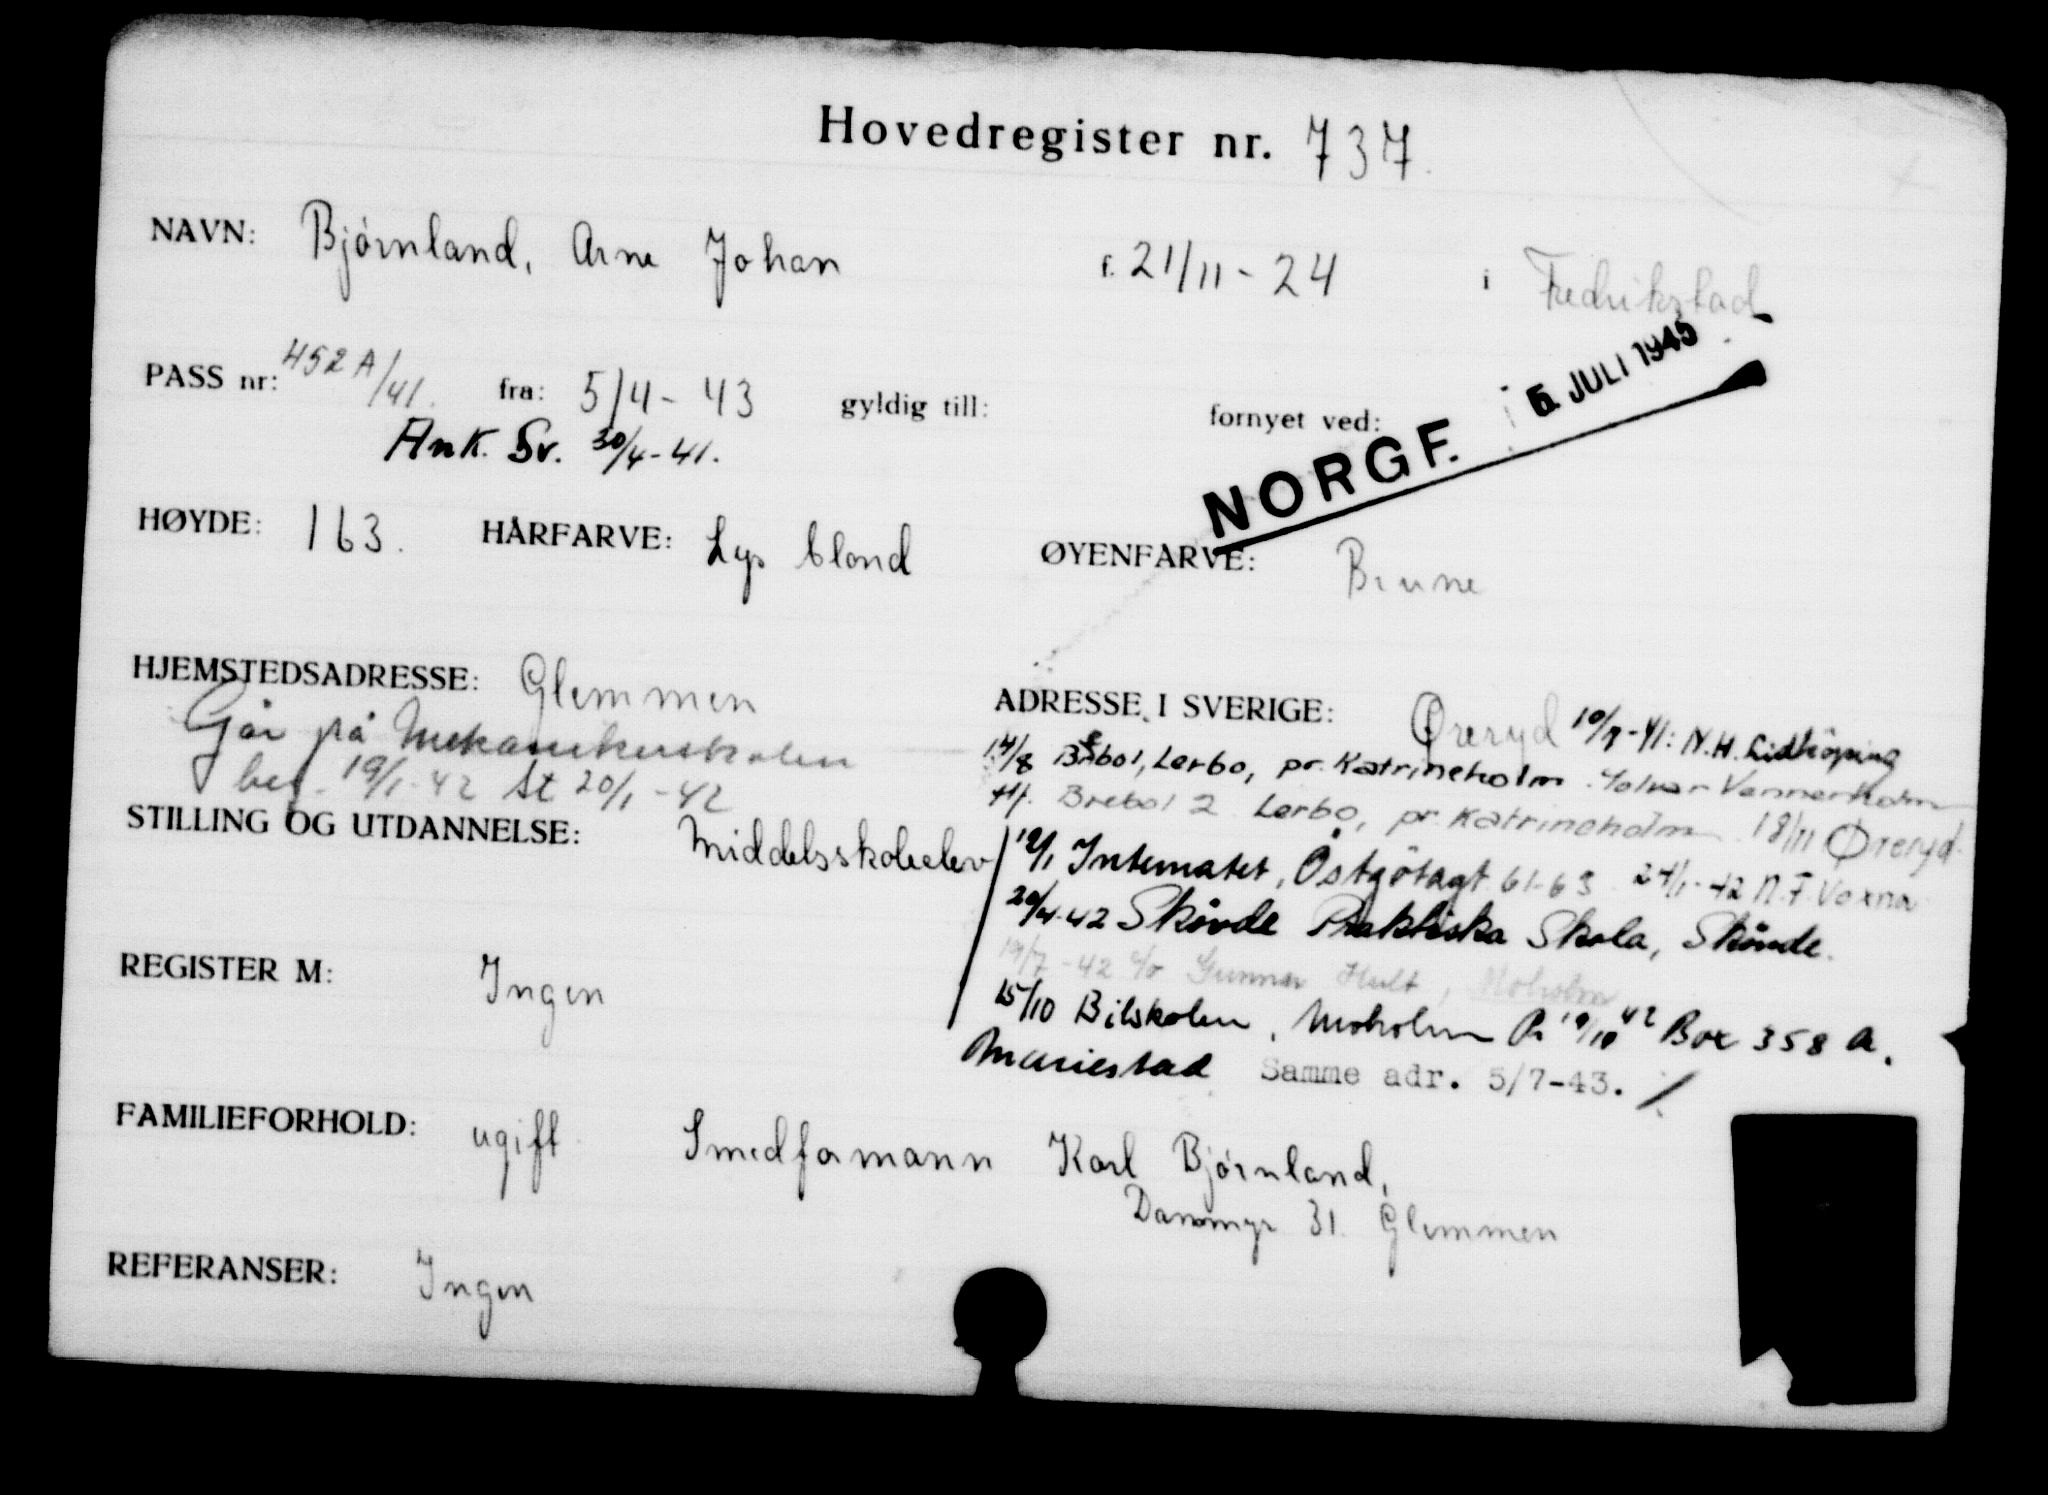 Hovedregister nr. 737.
NAVN: Bjørnland, Arne Johan f. 21/11 - 24 i Fredrikstad
PASS nr: 452 A/41. fra: 5/4 - 43 gyldig till: fornyet ved:
5. JULI 1945
Ank. Sv. 30/4-41.
NORGE.
HØYDE: 163. HÅRFARVE: Lys blond ØYENFARVE: Brune
HJEMSTEDSADRESSE: Glemmen
Går på Mekanikerskolen
beg. 19/1-42 St 20/1-42
ADRESSE I SVERIGE: Øreryd 10/7-41: N.H. Lidköping
14/8 Brebol, Lerbo, pr. Katrineholm.
Brebol 2 Lerbo, pr. Katrineholm 18/11 Øreryd.
STILLING OG UTDANNELSE: Middelsskoleelev
12/1 Internatet, Östgötagt 61-63 24/1-42 N.F. Voxna
20/4-42 Skövde Praktiska Skola, Skövde.
19/7-42 c/o Gunnar Hult, Moholm
15/10 Bilskolen, Moholm 19/10 42 Box 358 A.
Mariestad Samme adr. 5/7-43.
REGISTER M: Ingen
FAMILIEFORHOLD: ugift Smedformann Karl Bjørnland,
Dammyr 31. Glemmen
REFERANSER: Ingen